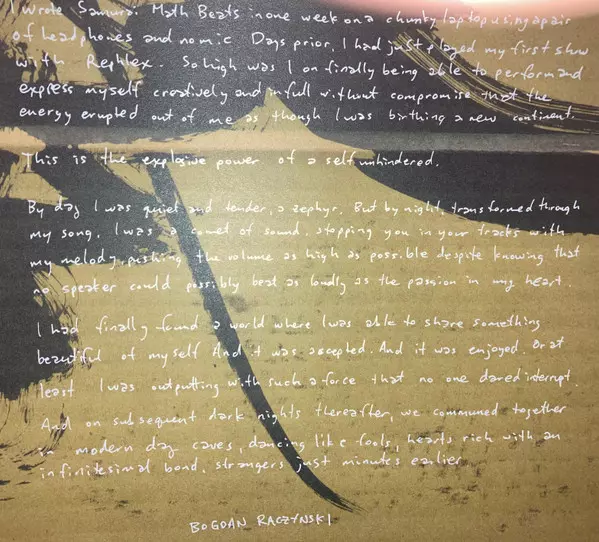 I wrote Samurai Math Beats in one week on a chunky laptop using a pair
of headphones and no mic. Days prior, I had just played my first show
with Rephlex. So high was I on finally being able to perform and
express myself creatively and in full without compromise that the
energy erupted out of me as though I was birthing a new continent.
This is the explosive power of a self unhindered.
By day I was quiet and tender, a zephyr. But by night, transformed through
my song, I was a comet of sound, stopping you in your tracks with
my melody, pushing the volume as high as possible despite knowing that
no speaker could possibly beat as loudly as the passion in my heart.
I had finally found a world where I was able to share something
beautiful of myself And it was accepted. And it was enjoyed. Or at
least I was outputting with such a force that no one dared interrupt.
And on subsequent dark nights thereafter, we communed together
in modern day caves, dancing like fools, hearts rich with an
infinitesimal bond, strangers just minutes earlier
BOGDAN RACZYNSKI